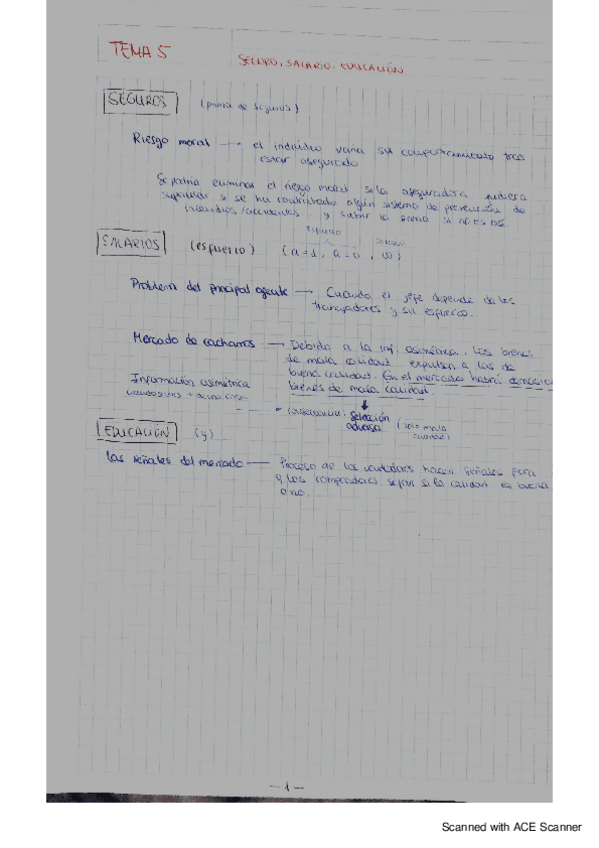 TEMA 5
SEGURO, SALARIO. EDUCACIÓN
SEGUROS (prima de seguros)
Riesgo moral → el individuo varía su comportamiento tras
estar asegurado
Se podría eliminar el riesgo moral si la aseguradora pudiera
supervisar si se ha contratado algún sistema de prevención de
incendios/accidentes y subir la prima si no es así.
esfuerzo
salario
SALARIOS (esfuerzo) (a=1, a=0, w)
Problema del principal agente → Cuando el jefe depende de los
trabajadores y su esfuerzo.
Mercado de cacharros → Debido a la inf. asimétrica, los bienes
de mala calidad expulsan a los de
buena calidad. En el mercado habrá
bienes de mala calidad.
Información asimétrica
consecuencia: Selección
adversa (solo mala
calidad)
EDUCACIÓN (y)
Las señales del mercado — Proceso de los vendedores hacen señales para
q los compradores sepan si la calidad es buena
o no.
- 1 -
Scanned with ACE Scanner